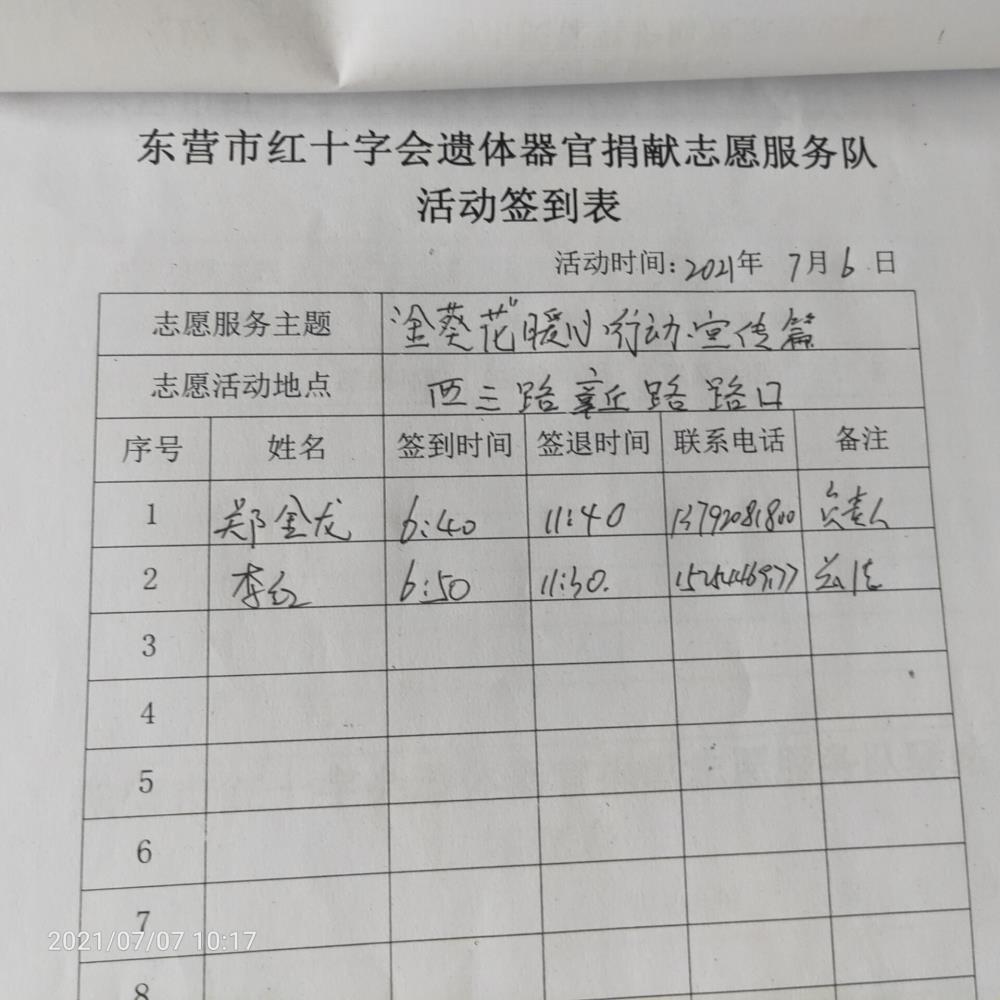 东营市红十字会遗体器官捐献志愿服务队
活动签到表
活动时间:2021年 7月6日
志愿服务主题 金葵花"暖心行动·宣传篇
志愿活动地点 西三路 路路口
序号 姓名 签到时间 签退时间 联系电话 备注
1 郑金龙 6:40 11:40 13792081800 负责人
2 李红 6:50 11:30. 宣传
3
4
5
6
7
8
2021/07/07 10:17